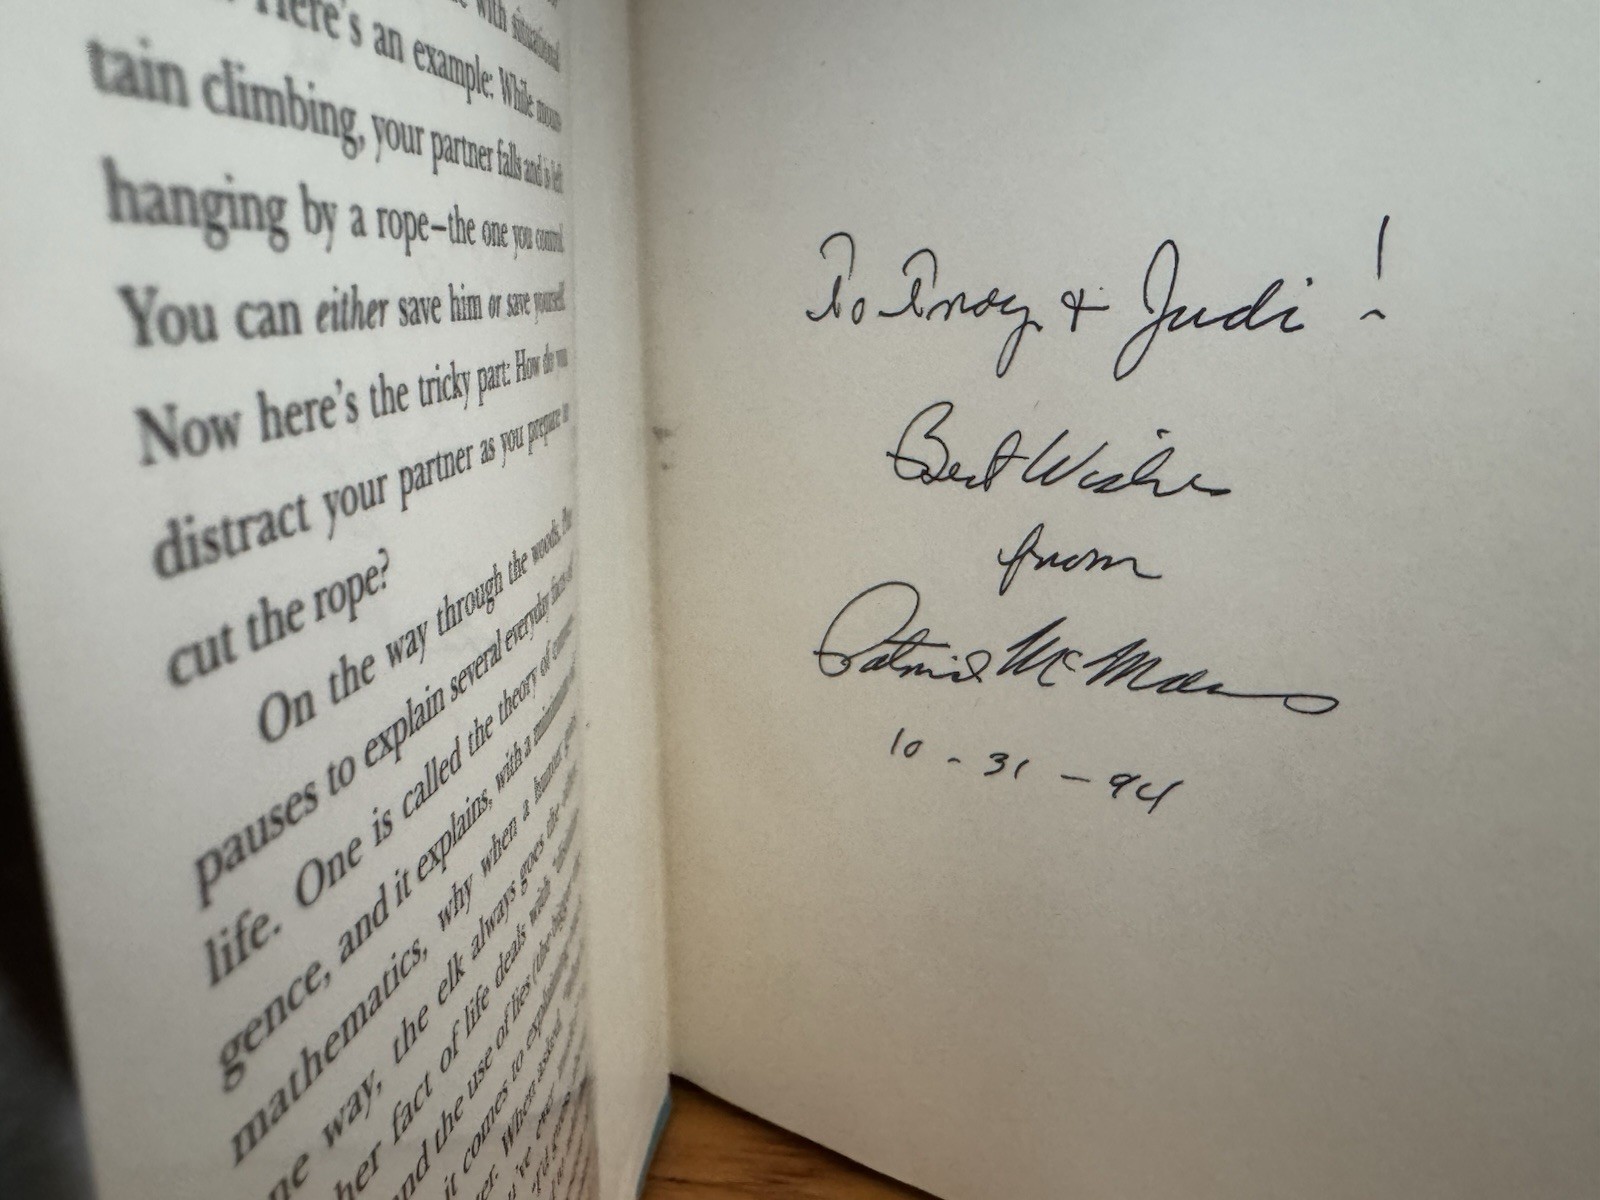 Here's an example: While moun-
tain climbing, your partner falls and is left
hanging by a rope—the one you control.
You can either save him or save yourself.
Now here's the tricky part: How do you
distract your partner as you prepare to
cut the rope?
On the way through the woods,
pauses to explain several everyday facts of
life. One is called the theory of
gence, and it explains, with a minimum of
mathematics, why when a hunter goes
one way, the elk always goes the other.
fact of life deals with
and the use of lies (the bigger
it comes to explaining
When asked
To Troy & Judi!
Best Wishes
from
Patrick McManus
10-31-94